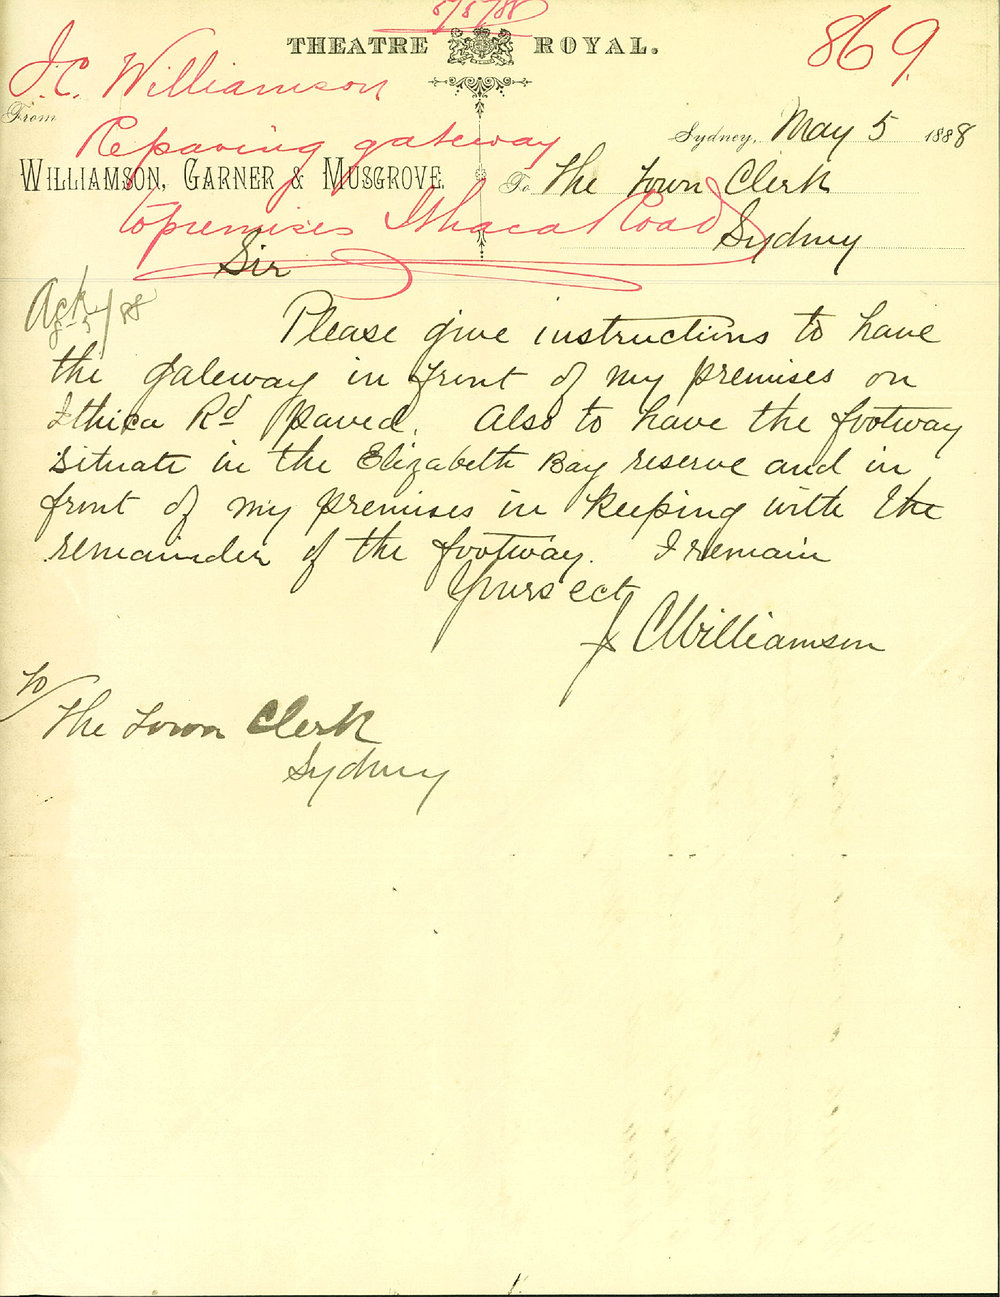 5/5/88
THEATRE ROYAL.
869.
J.C. Williamson
From
Sydney, May 5 1888
Repaving gateway
WILLIAMSON, GARNER & MUSGROVE.
To The Town Clerk
to premises Ithaca Road
Sydney
Sir
Ack
8/5/88
Please give instructions to have
the gateway in front of my premises on
Ithica Rd paved. Also to have the footway
situate in the Elizabeth Bay reserve and in
front of my premises in keeping with the
remainder of the footway. I remain
Yours ect
J C Williamson
To
The Town Clerk
Sydney